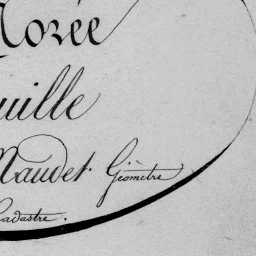 Morée
uille
Naudet Géomètre
Cadastre.